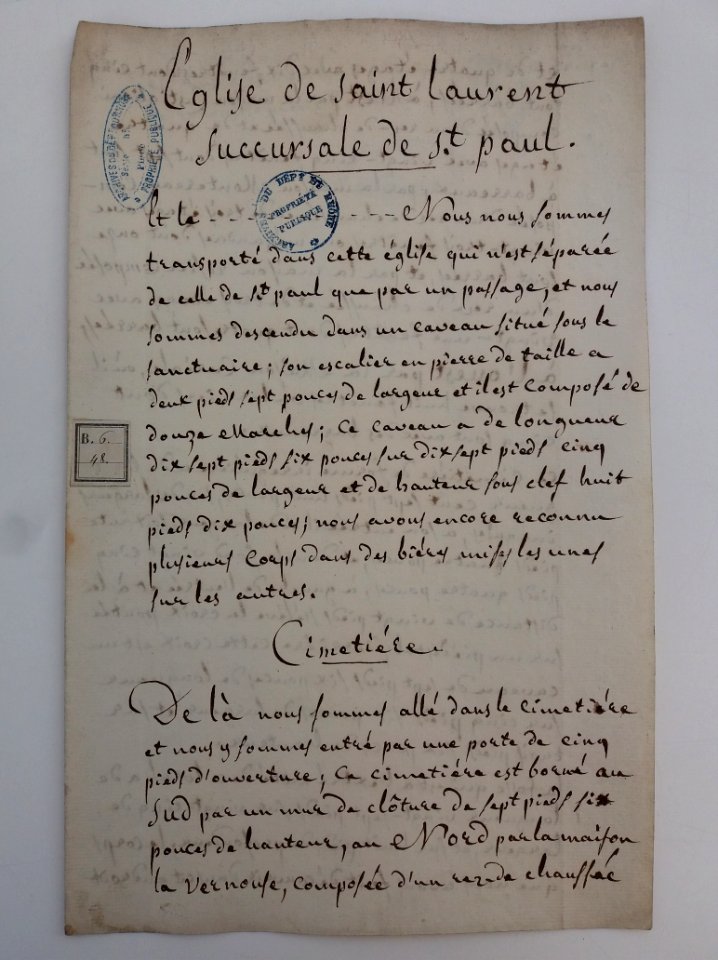 Eglise de saint laurent
succursale de s.t paul.
Et le - - - - - - - - - - Nous nous sommes
transporté dans cette église qui n'est séparée
de celle de s.t paul que par un passage, et nous
sommes descendu dans un caveau situé sous le
sanctuaire; son escalier en pierre de taille a
deux pieds sept pouces de largeur et il est composé de
douze Marches; ce caveau a de longueur
dix sept pieds six pouces sur dix sept pieds cinq
pouces de largeur et de hauteur sous clef huit
pieds dix pouces; nous avons encore reconnu
plusieurs corps dans des biéres mises les unes
sur les autres.
Cimetiére.
De là nous sommes allé dans le cimetiére
et nous y sommes entré par une porte de cinq
pieds d'ouverture; ce cimetiére est borné au
sud par un mur de clôture de sept pieds six
pouces de hauteur, au Nord par la maison
la vernouse, composée d'un rez-de chaussée
ARCHIVES DU DÉPT DU RHÔNE
PROPRIÉTÉ
PUBLIQUE
PROPRIÉTÉ PUBLIQUE
B. 6.
48.